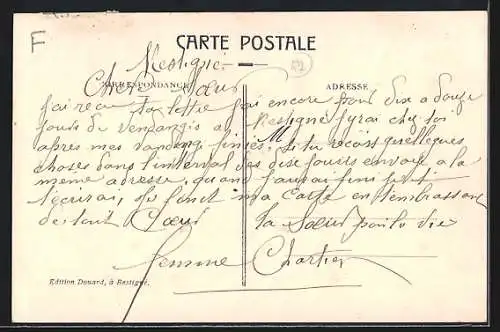 F
CARTE POSTALE
Restigne
CORRESPONDANCE
ADRESSE
Chère Sœur
j'ai reçu ta lettre j'ai encore pour dix a douze
jours de vendanges a Restigné j'yrai chez toi
apres mes vandange finies, si tu reçois quelleques
choses dans l'interval des dix jours envoye a la
meme adresse, quand j'aurai fini je t'
ecurai, ma carte en t'embrassant
de tout Cœur ta Sœur pour la vie
femme Chartier
Edition Douard, à Restigné.